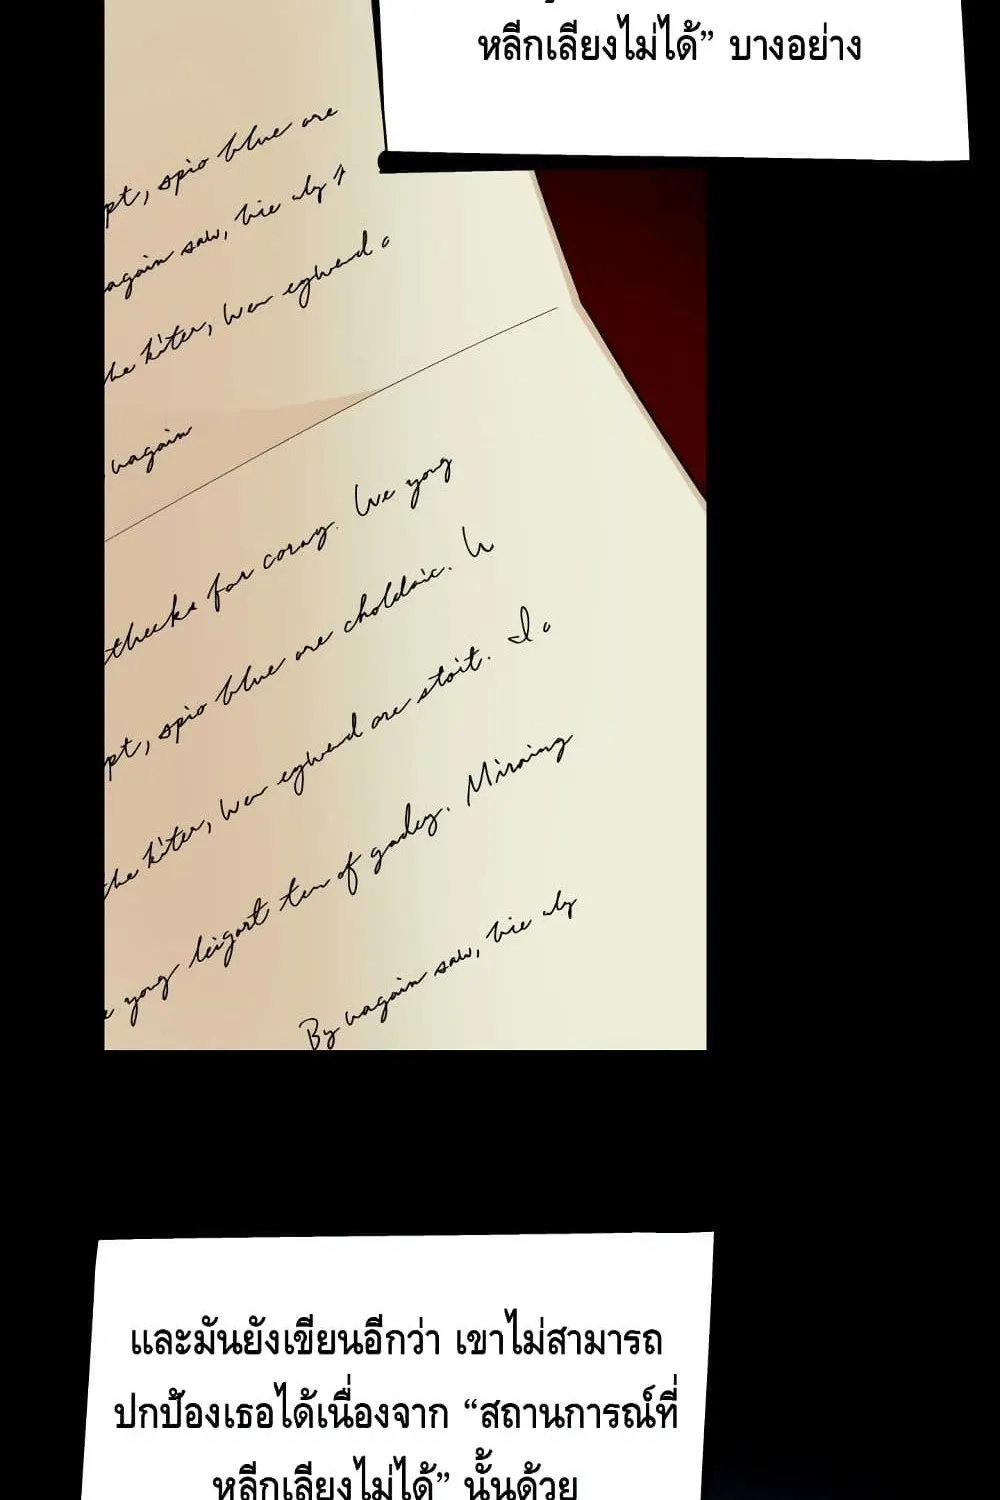 หลีกเลี่ยงไม่ได้” บางอย่าง
pt, spio blue are
vagain saw, bie aly
the kiter, wer eghwend a
vagain
theeks for coray. We yong
pt, spio blue are choldaic. W
the kiter, wer eghwend are stoit. I a
yong leigart ten of gadey. Miraing
By vagain saw, bie aly
และมันยังเขียนอีกว่า เขาไม่สามารถ
ปกป้องเธอได้เนื่องจาก “สถานการณ์ที่
หลีกเลี่ยงไม่ได้” นั้นด้วย